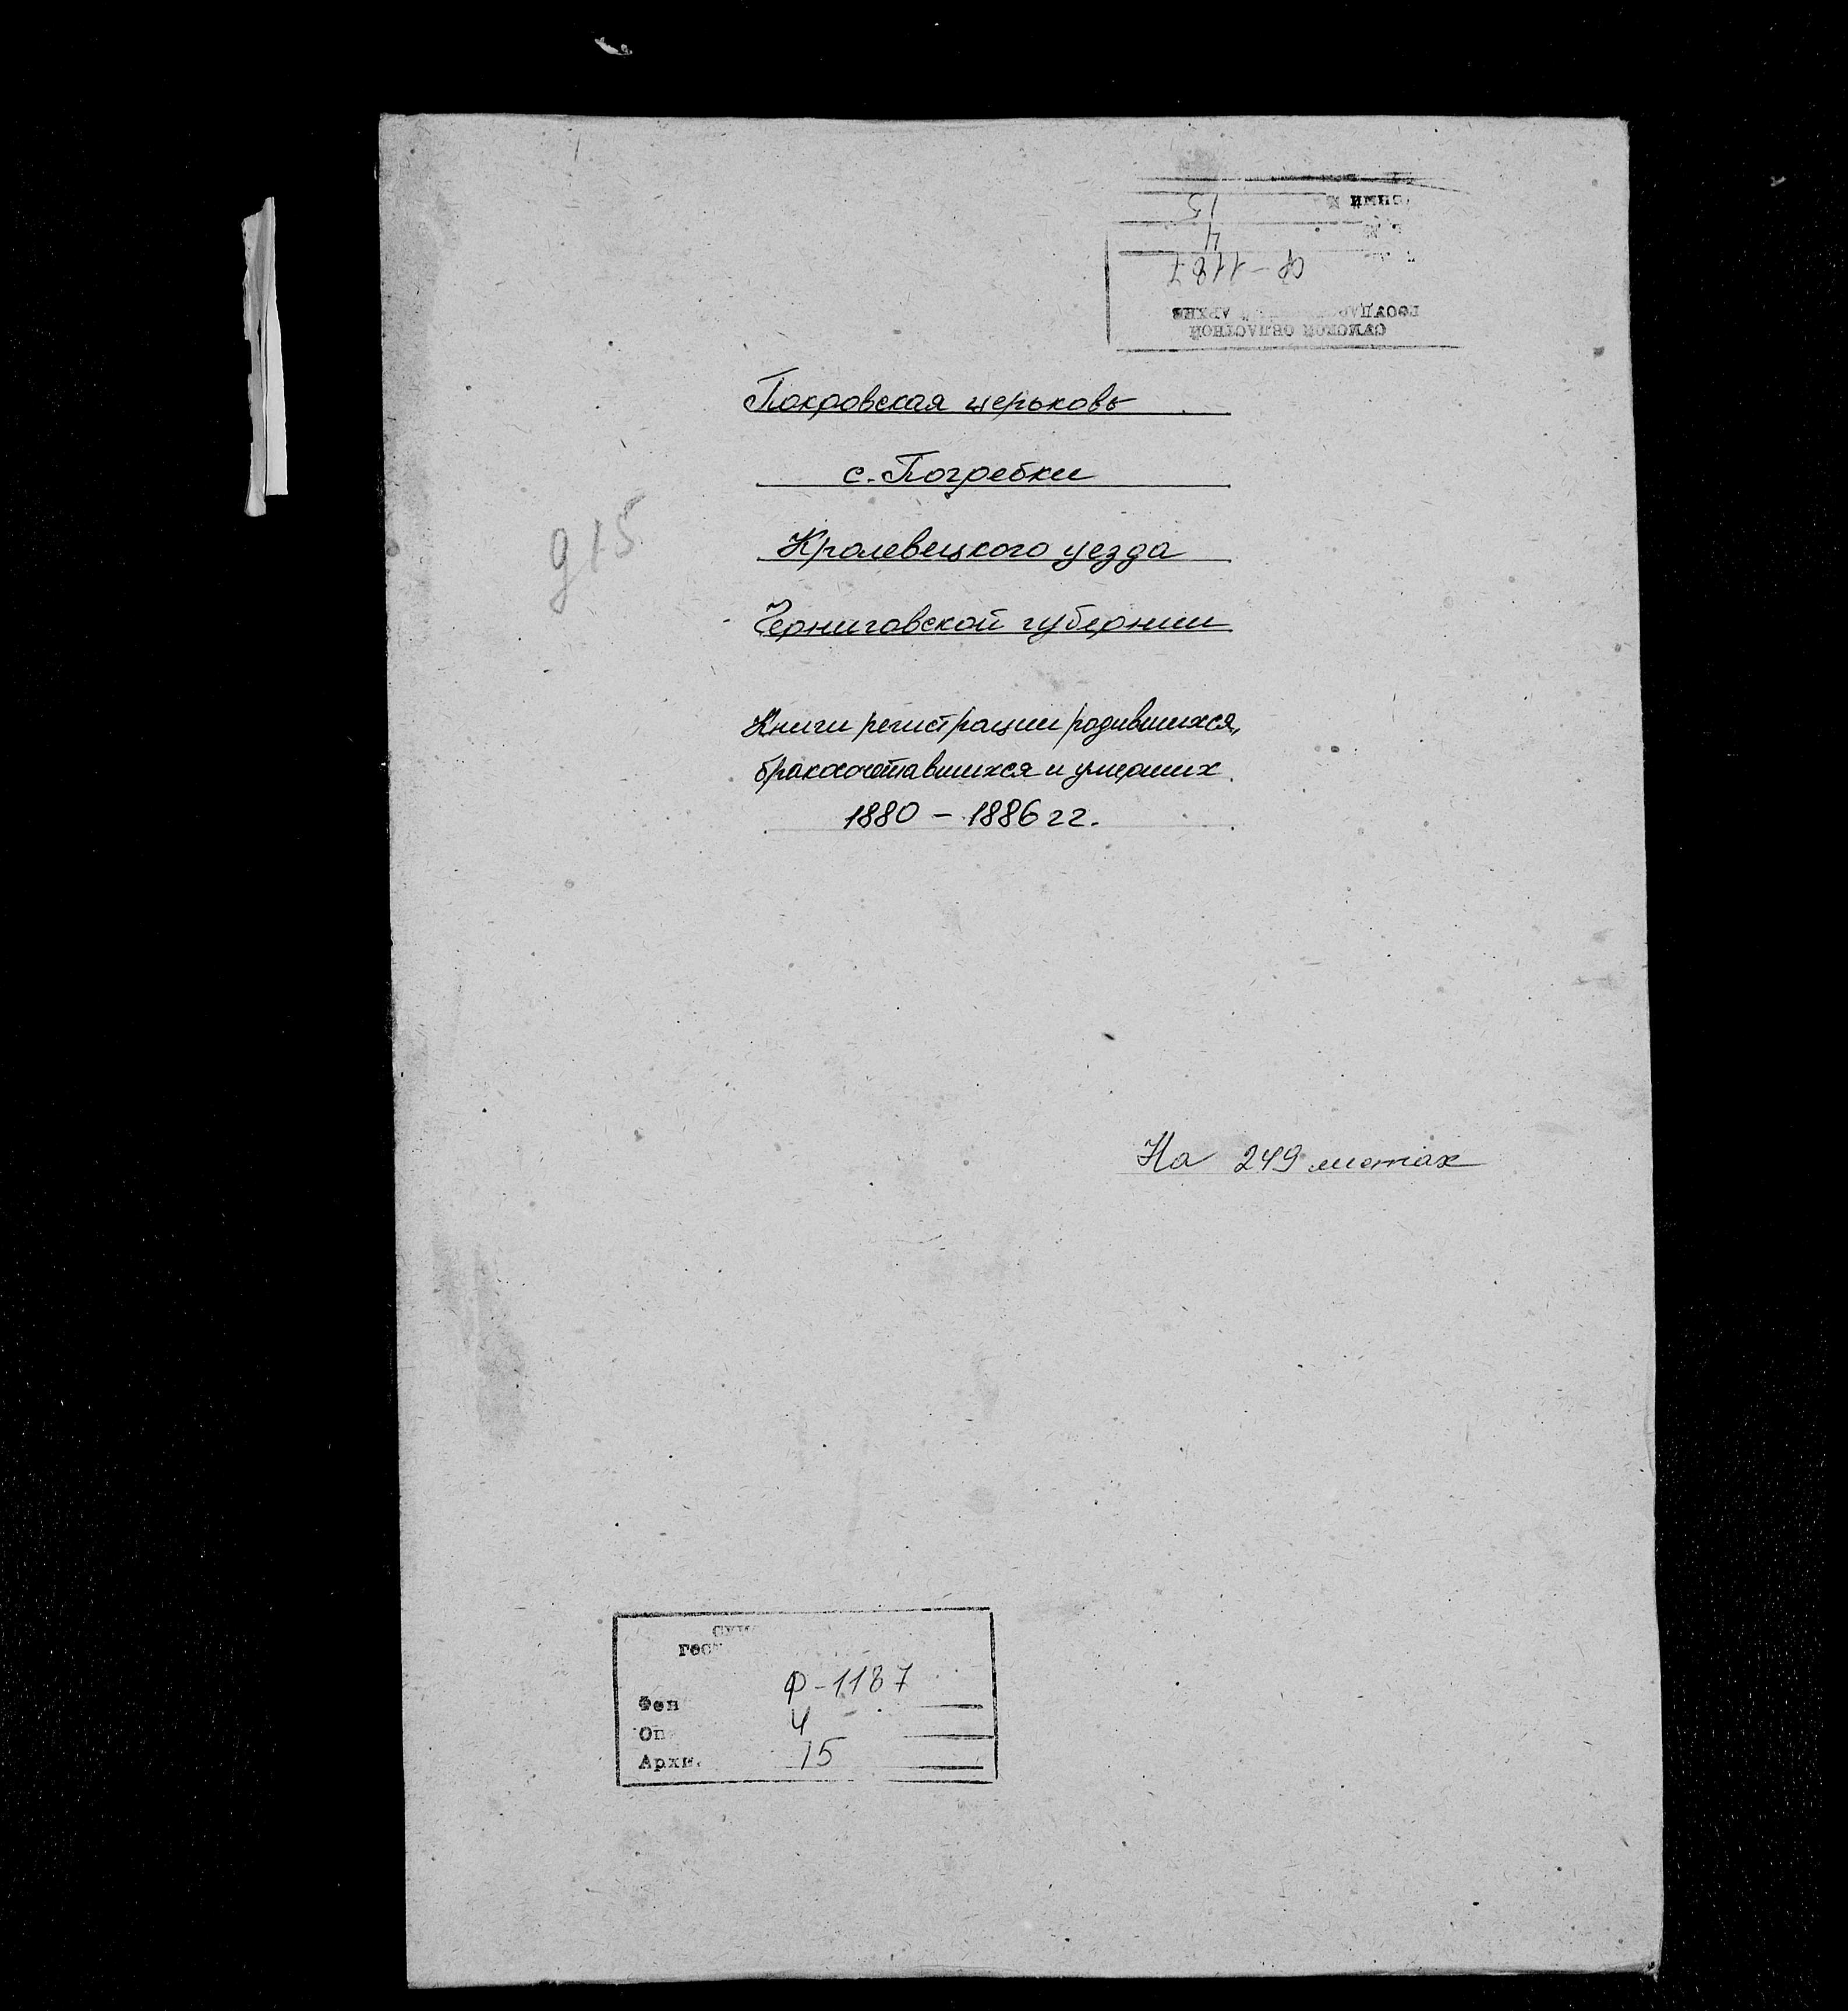 СУМСКОЙ ОБЛАСТНОЙ
Ф-1187
4
15
Покровская церковь
с. Погребки
Кролевецкого уезда
д 15
Черниговской губернии
Книги регистрации родившихся,
бракосочетавшихся и умерших
1880 - 1886 гг.
На 249 листах
Ф-1187
Оп
4
15